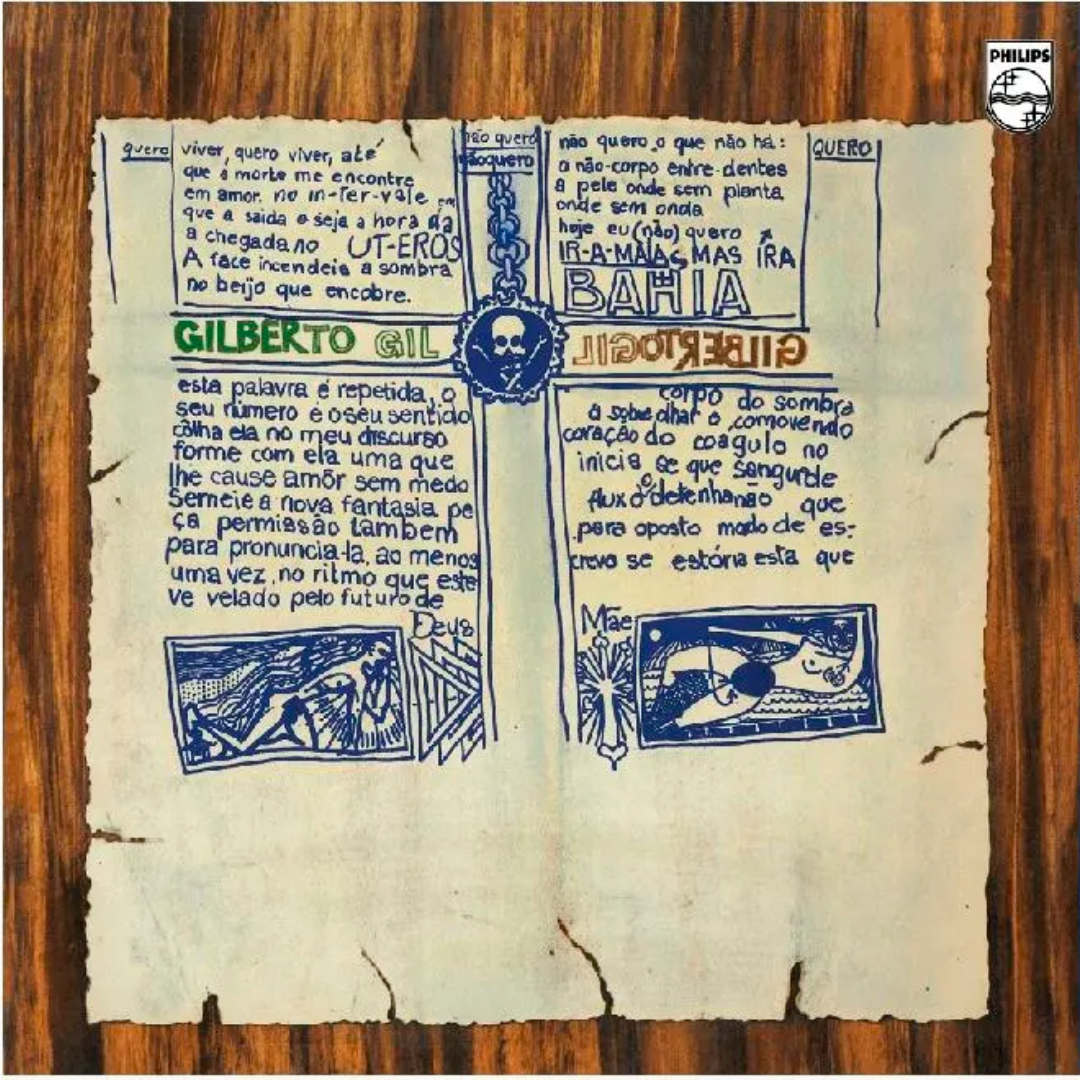 PHILIPS
quero
viver, quero viver, até
que a morte me encontre
em amor, no in-ter-vale em
que a saida o seja a hora da
a chegada no UT-EROS
A face incendeia a sombra
no beijo que encobre.
não quero
nãoquero
não quero o que não há:
o não-corpo entre-dentes
a pele onde sem planta
onde sem onda
hoje eu (não) quero
IR-A-MAIAS MAS IRA
BAHIA
QUERO
GILBERTO GIL
GILBERTO GIL
esta palavra é repetida, o
seu número é o seu sentido
colha ela no meu discurso
forme com ela uma que
lhe cause amôr sem medo
Semeie a nova fantasia pe
ça permissão tambem
para pronuncia-la, ao menos
uma vez, no ritmo que este
ve velado pelo futuro de
Deus
corpo do sombra
a sobre olhar o comovendo
coração do coagulo no
inicia se que sangue de
fluxo o detenha não que
para oposto modo de es-
crevo se estória esta que
Mãe